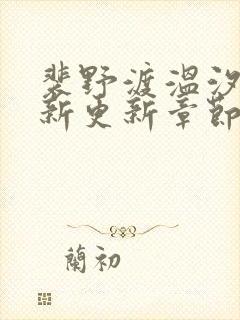 裴野渡温汐
新更新章節
蘭初